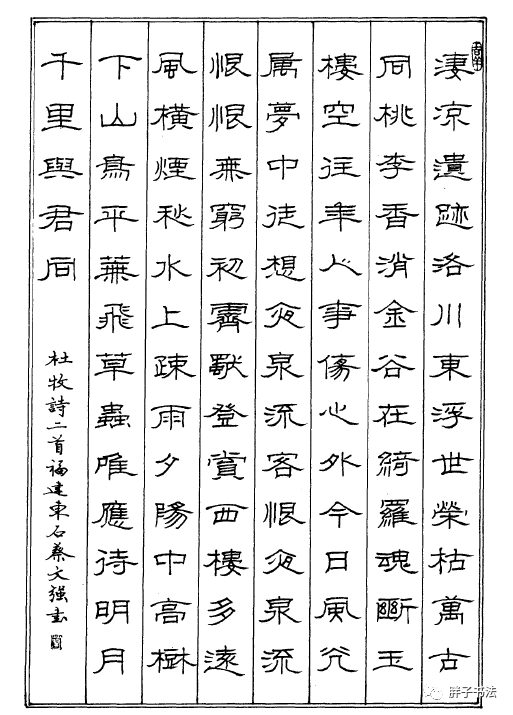 淒涼遺跡洛川東浮世榮枯萬古
同桃李香消金谷在綺羅魂斷玉
樓空往年人事傷心外今日風光
属夢中徒想夜泉流客恨夜泉流
恨恨無窮初霽獨登賞西樓多遠
風橫煙秋水上疎雨夕陽中高樹
下山鳥平蕪飛草蟲唯應待明月
千里與君同
杜牧詩二首福建東石蔡文強書
胖子书法